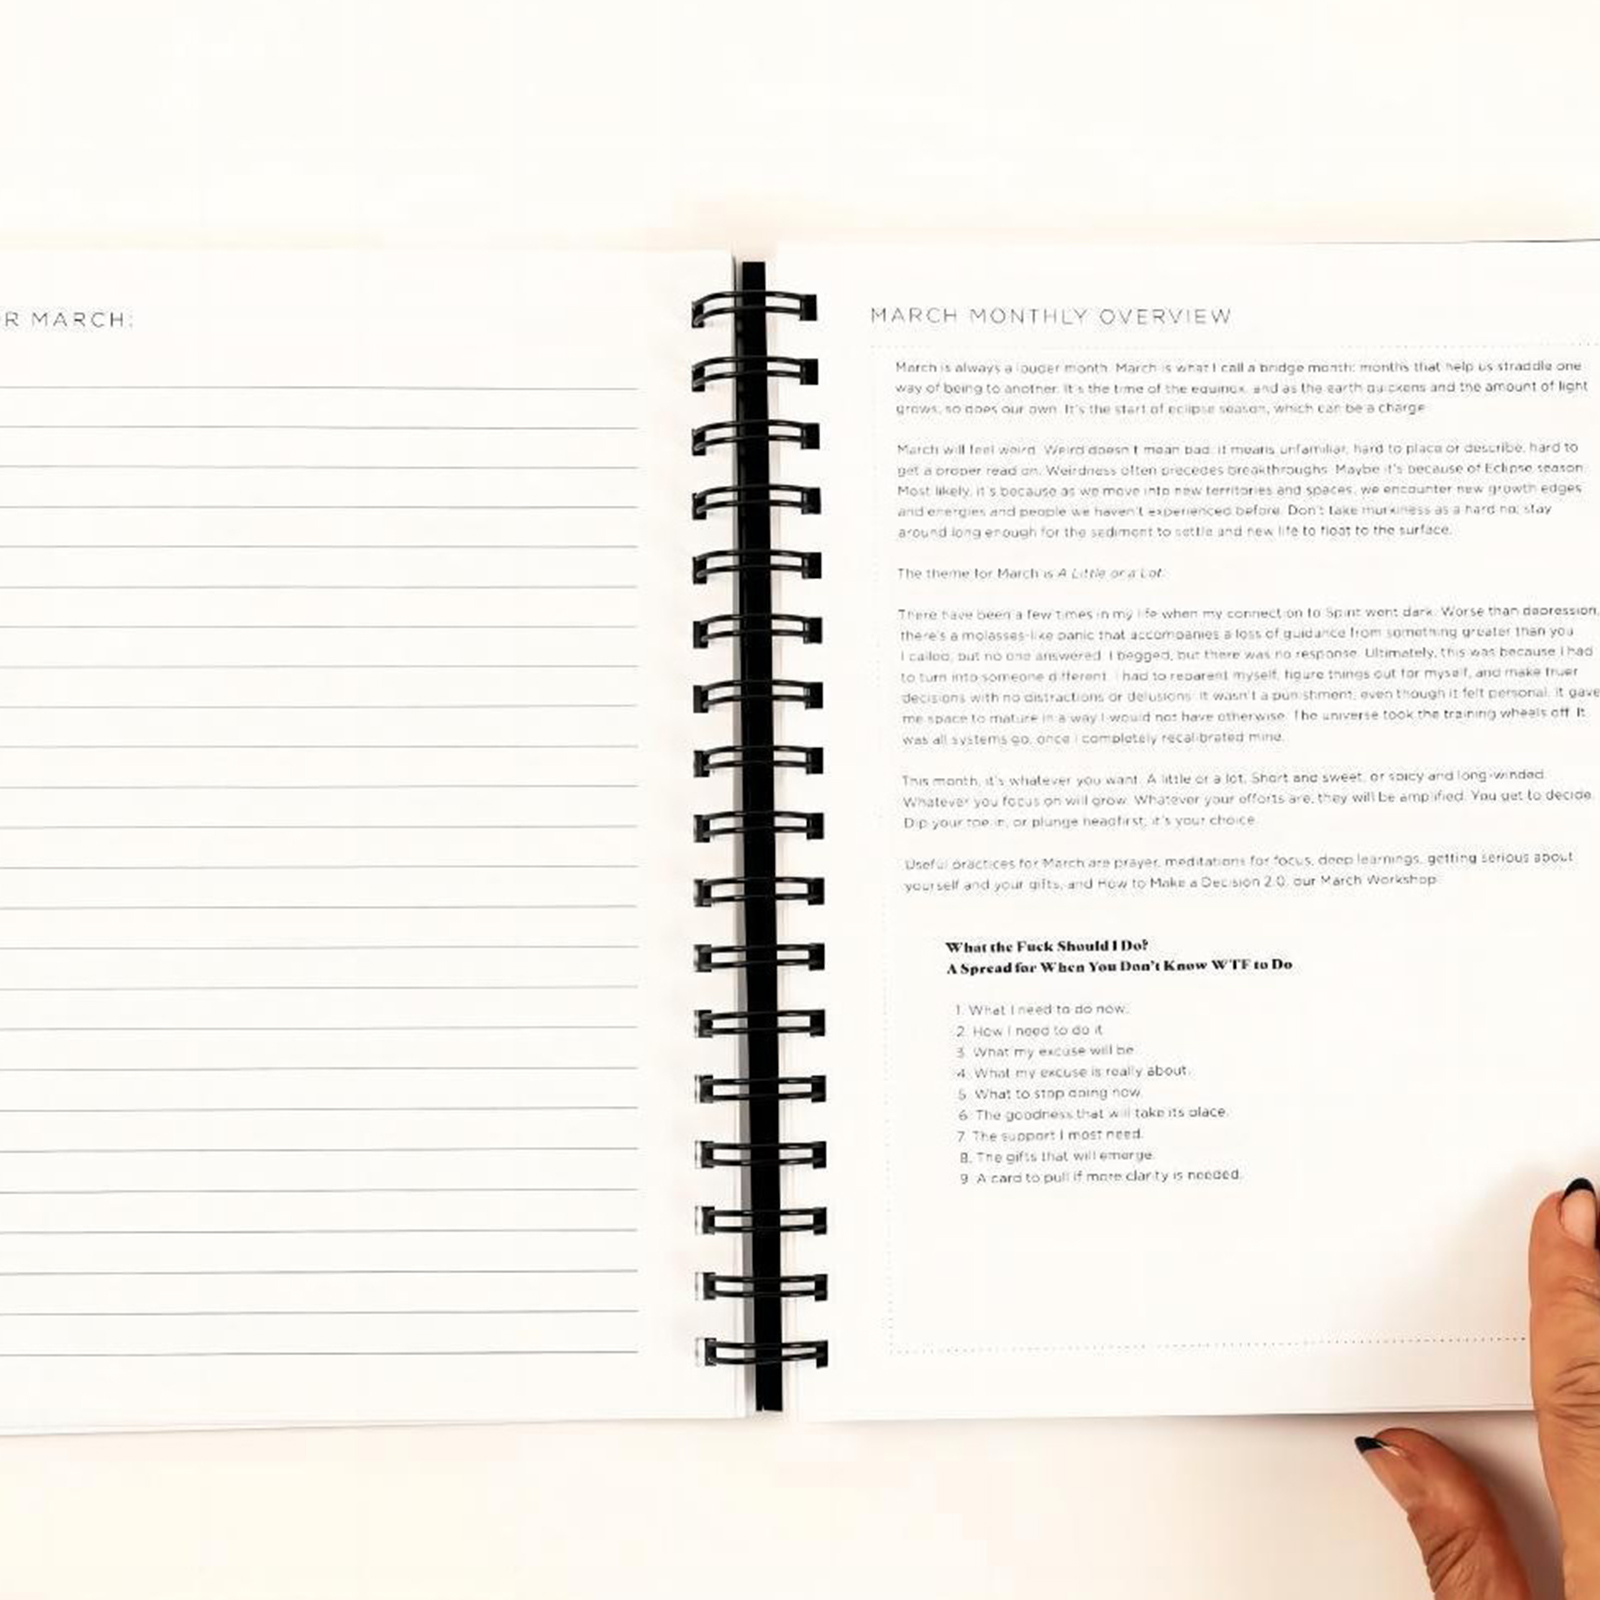 R MARCH:
MARCH MONTHLY OVERVIEW
March is always a louder month. March is what I call a bridge month: months that help us straddle one
way of being to another. It's the time of the equinox, and as the earth quickens and the amount of light
grows, so does our own. It's the start of eclipse season, which can be a charge.
March will feel weird. Weird doesn't mean bad; it means unfamiliar, hard to place or describe, hard to
get a proper read on. Weirdness often precedes breakthroughs. Maybe it's because of Eclipse season.
Most likely, it's because as we move into new territories and spaces, we encounter new growth edges
and energies and people we haven't experienced before. Don't take murkiness as a hard no; stay
around long enough for the sediment to settle and new life to float to the surface.
The theme for March is A Little or a Lot.
There have been a few times in my life when my connection to Spirit went dark. Worse than depression,
there's a molasses-like panic that accompanies a loss of guidance from something greater than you.
I called, but no one answered. I begged, but there was no response. Ultimately, this was because I had
to turn into someone different. I had to reparent myself, figure things out for myself, and make truer
decisions with no distractions or delusions. It wasn't a punishment, even though it felt personal. It gave
me space to mature in a way I would not have otherwise. The universe took the training wheels off. It
was all systems go, once I completely recalibrated mine.
This month, it's whatever you want. A little or a lot. Short and sweet, or spicy and long-winded.
Whatever you focus on will grow. Whatever your efforts are, they will be amplified. You get to decide.
Dip your toe in, or plunge headfirst; it's your choice.
Useful practices for March are prayer, meditations for focus, deep learnings, getting serious about
yourself and your gifts, and How to Make a Decision 2.0, our March Workshop.
What the Fuck Should I Do?
A Spread for When You Don't Know WTF to Do
1. What I need to do now.
2. How I need to do it.
3. What my excuse will be.
4. What my excuse is really about.
5. What to stop doing now.
6. The goodness that will take its place.
7. The support I most need.
8. The gifts that will emerge.
9. A card to pull if more clarity is needed.